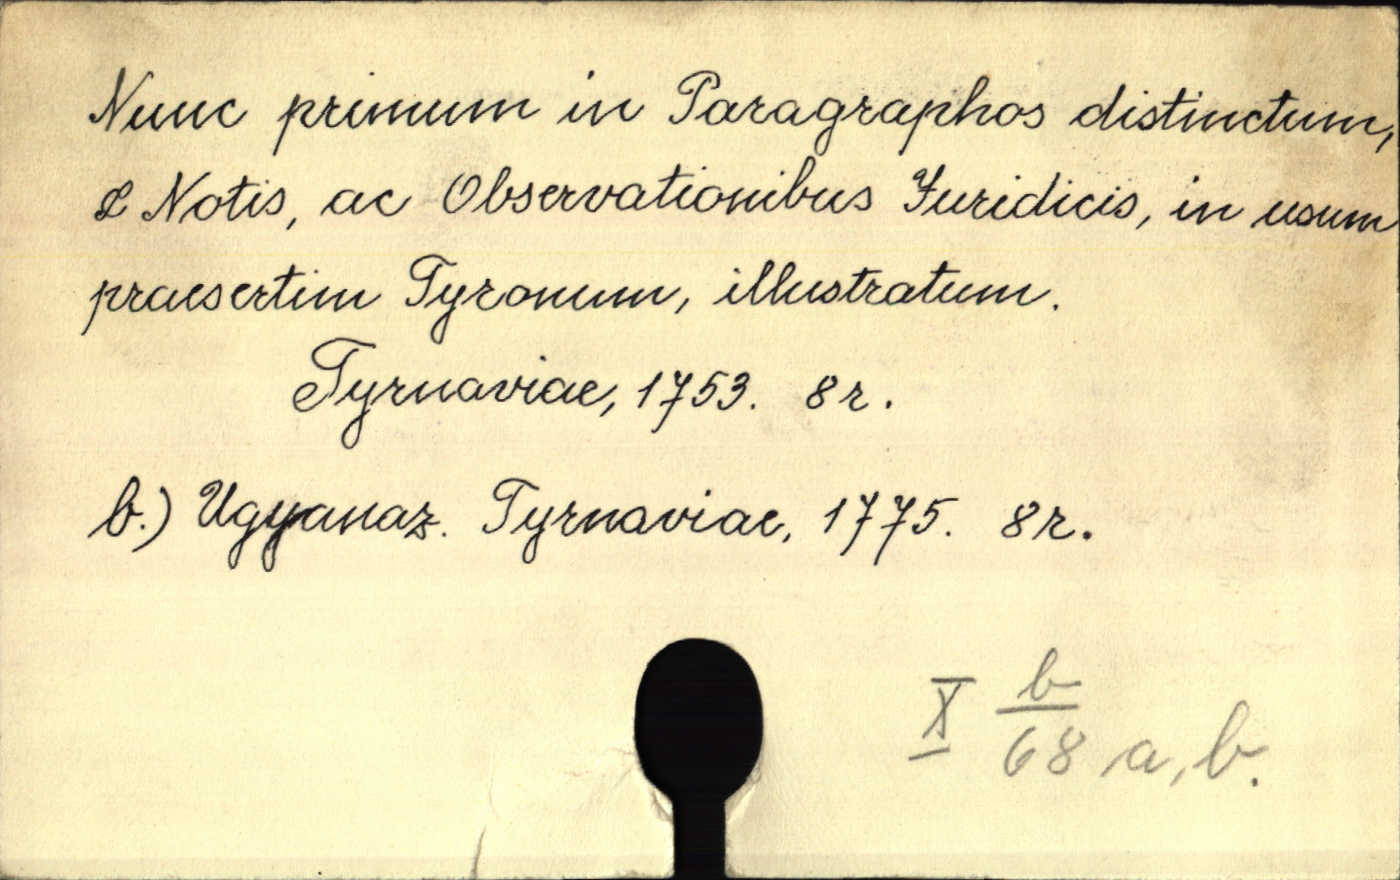 Nunc primum in Paragraphos distinctum,
& Notis, ac Observationibus Juridicis, in usum
praesertim Tyronum, illustratum.
Tyrnaviae, 1753. 8r.
b.) Ugyanaz. Tyrnaviae, 1775. 8r.
X b/68 a, b.